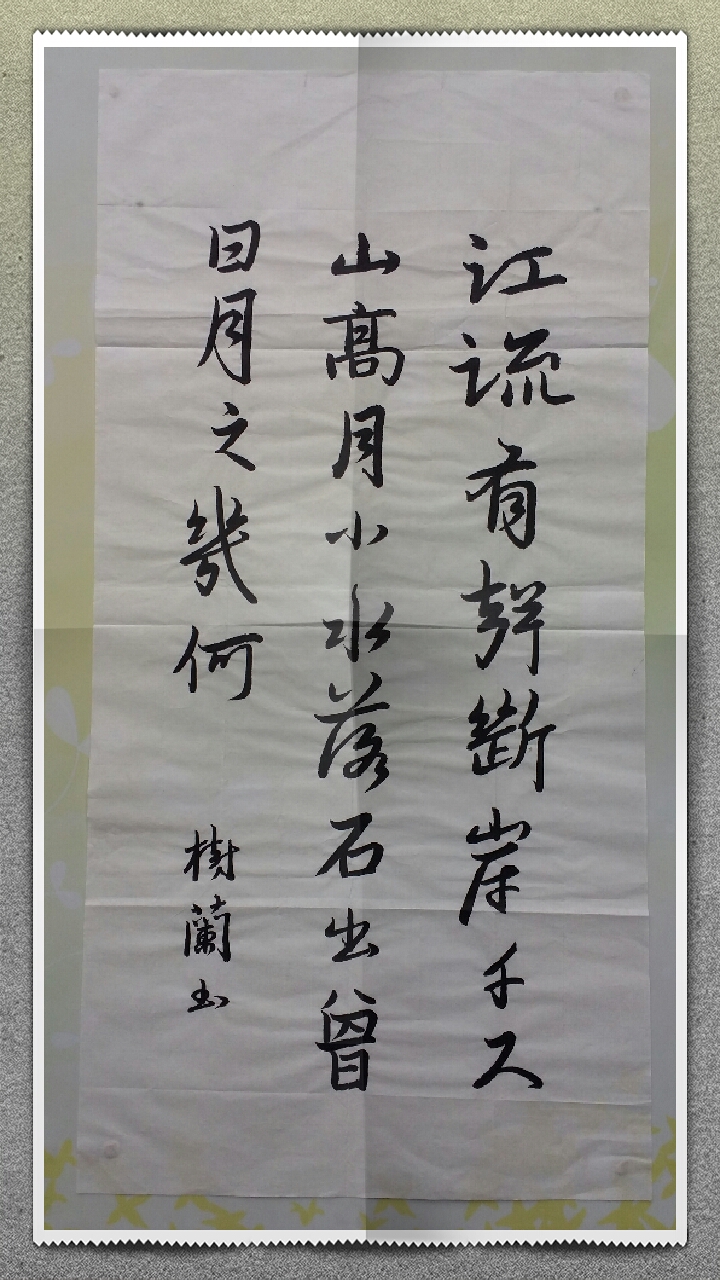 江流有聲斷岸千尺
山高月小水落石出曾
日月之幾何
樹蘭书